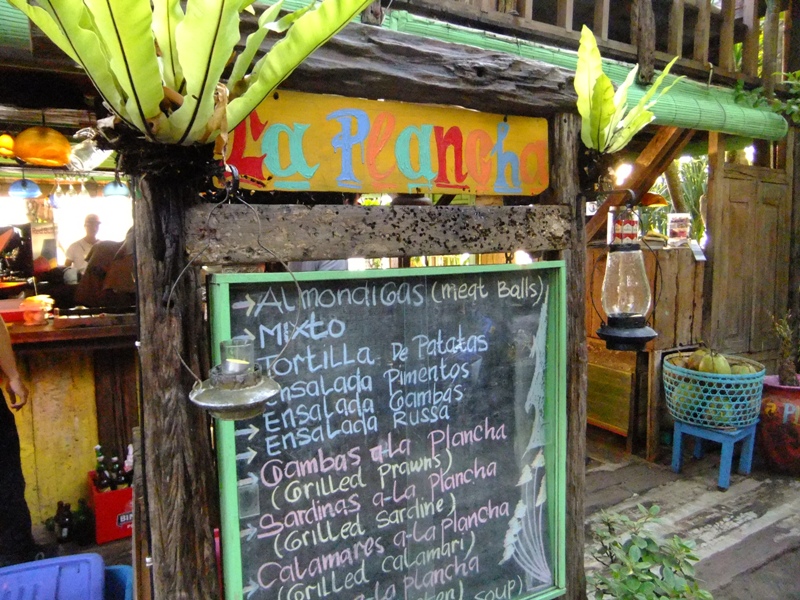 La Plancha
→ Almondigas (meat Balls)
→ Mixto
Tortilla De Patatas
Ensalada Pimentos
→ Ensalada Gambas
→ Ensalada Russa
→ Gambas a-La Plancha
(Grilled Prawns)
→ Sardinas a-La Plancha
(Grilled Sardine)
→ Calamares a-La plancha
(Grilled calamari)
a-La plancha
soup)
BIN